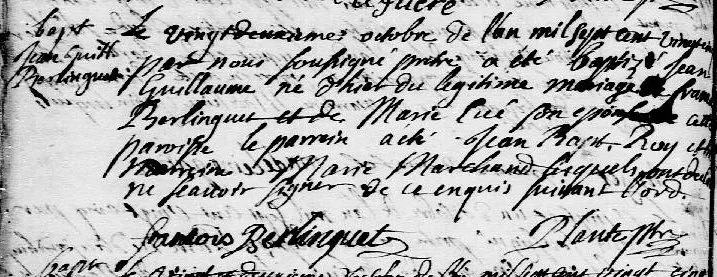 bapt
Jean Guill
Berlinguet
Le vingt deuxieme octobre de l'an mil sept cent vingt
par nous soussigné prtre a été baptizé Jean
Guillaume né d'hier du legitime mariage de fran
Berlinguet et de Marie son epouse de cette
paroisse le parrein a été Jean Bapt. Roy et la
marreine Marie Marchand lesquels ont declaré
ne scavoir signer de ce enquis suivant l'ord.
francois Berlinguet Plante ptre